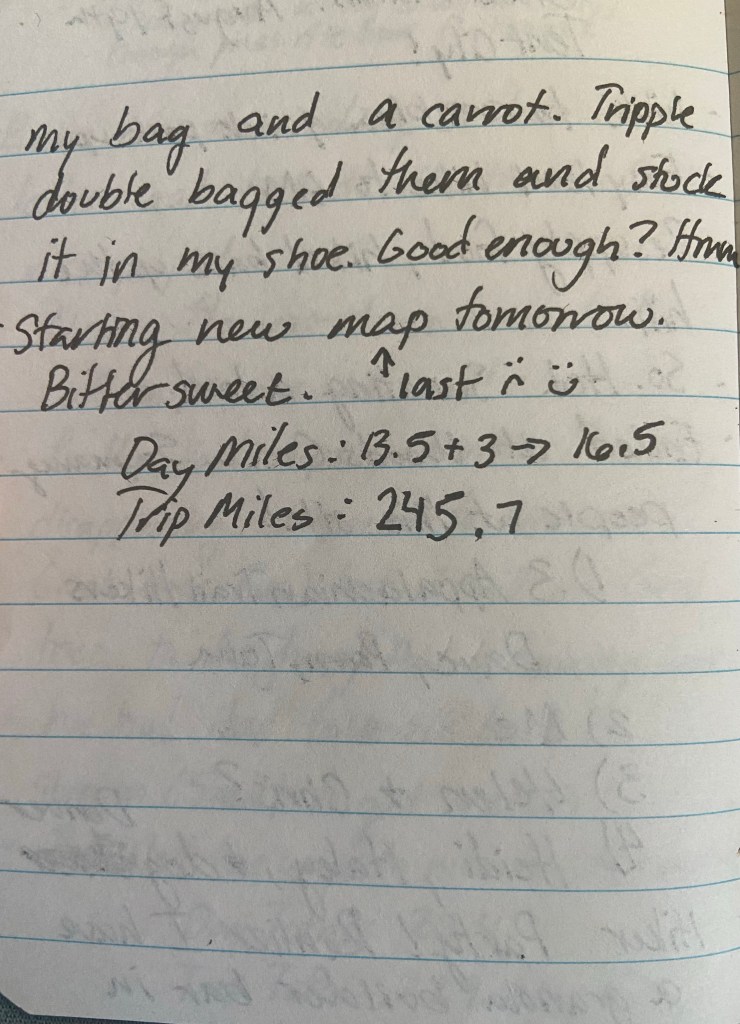 my bag and a carrot. Tripple
double bagged them and stuck
it in my shoe. Good enough? Hmm
- Starting new map tomorrow.
Bittersweet. ↑ last :( :)
Day Miles: 13.5 + 3 → 16.5
Trip Miles: 245.7